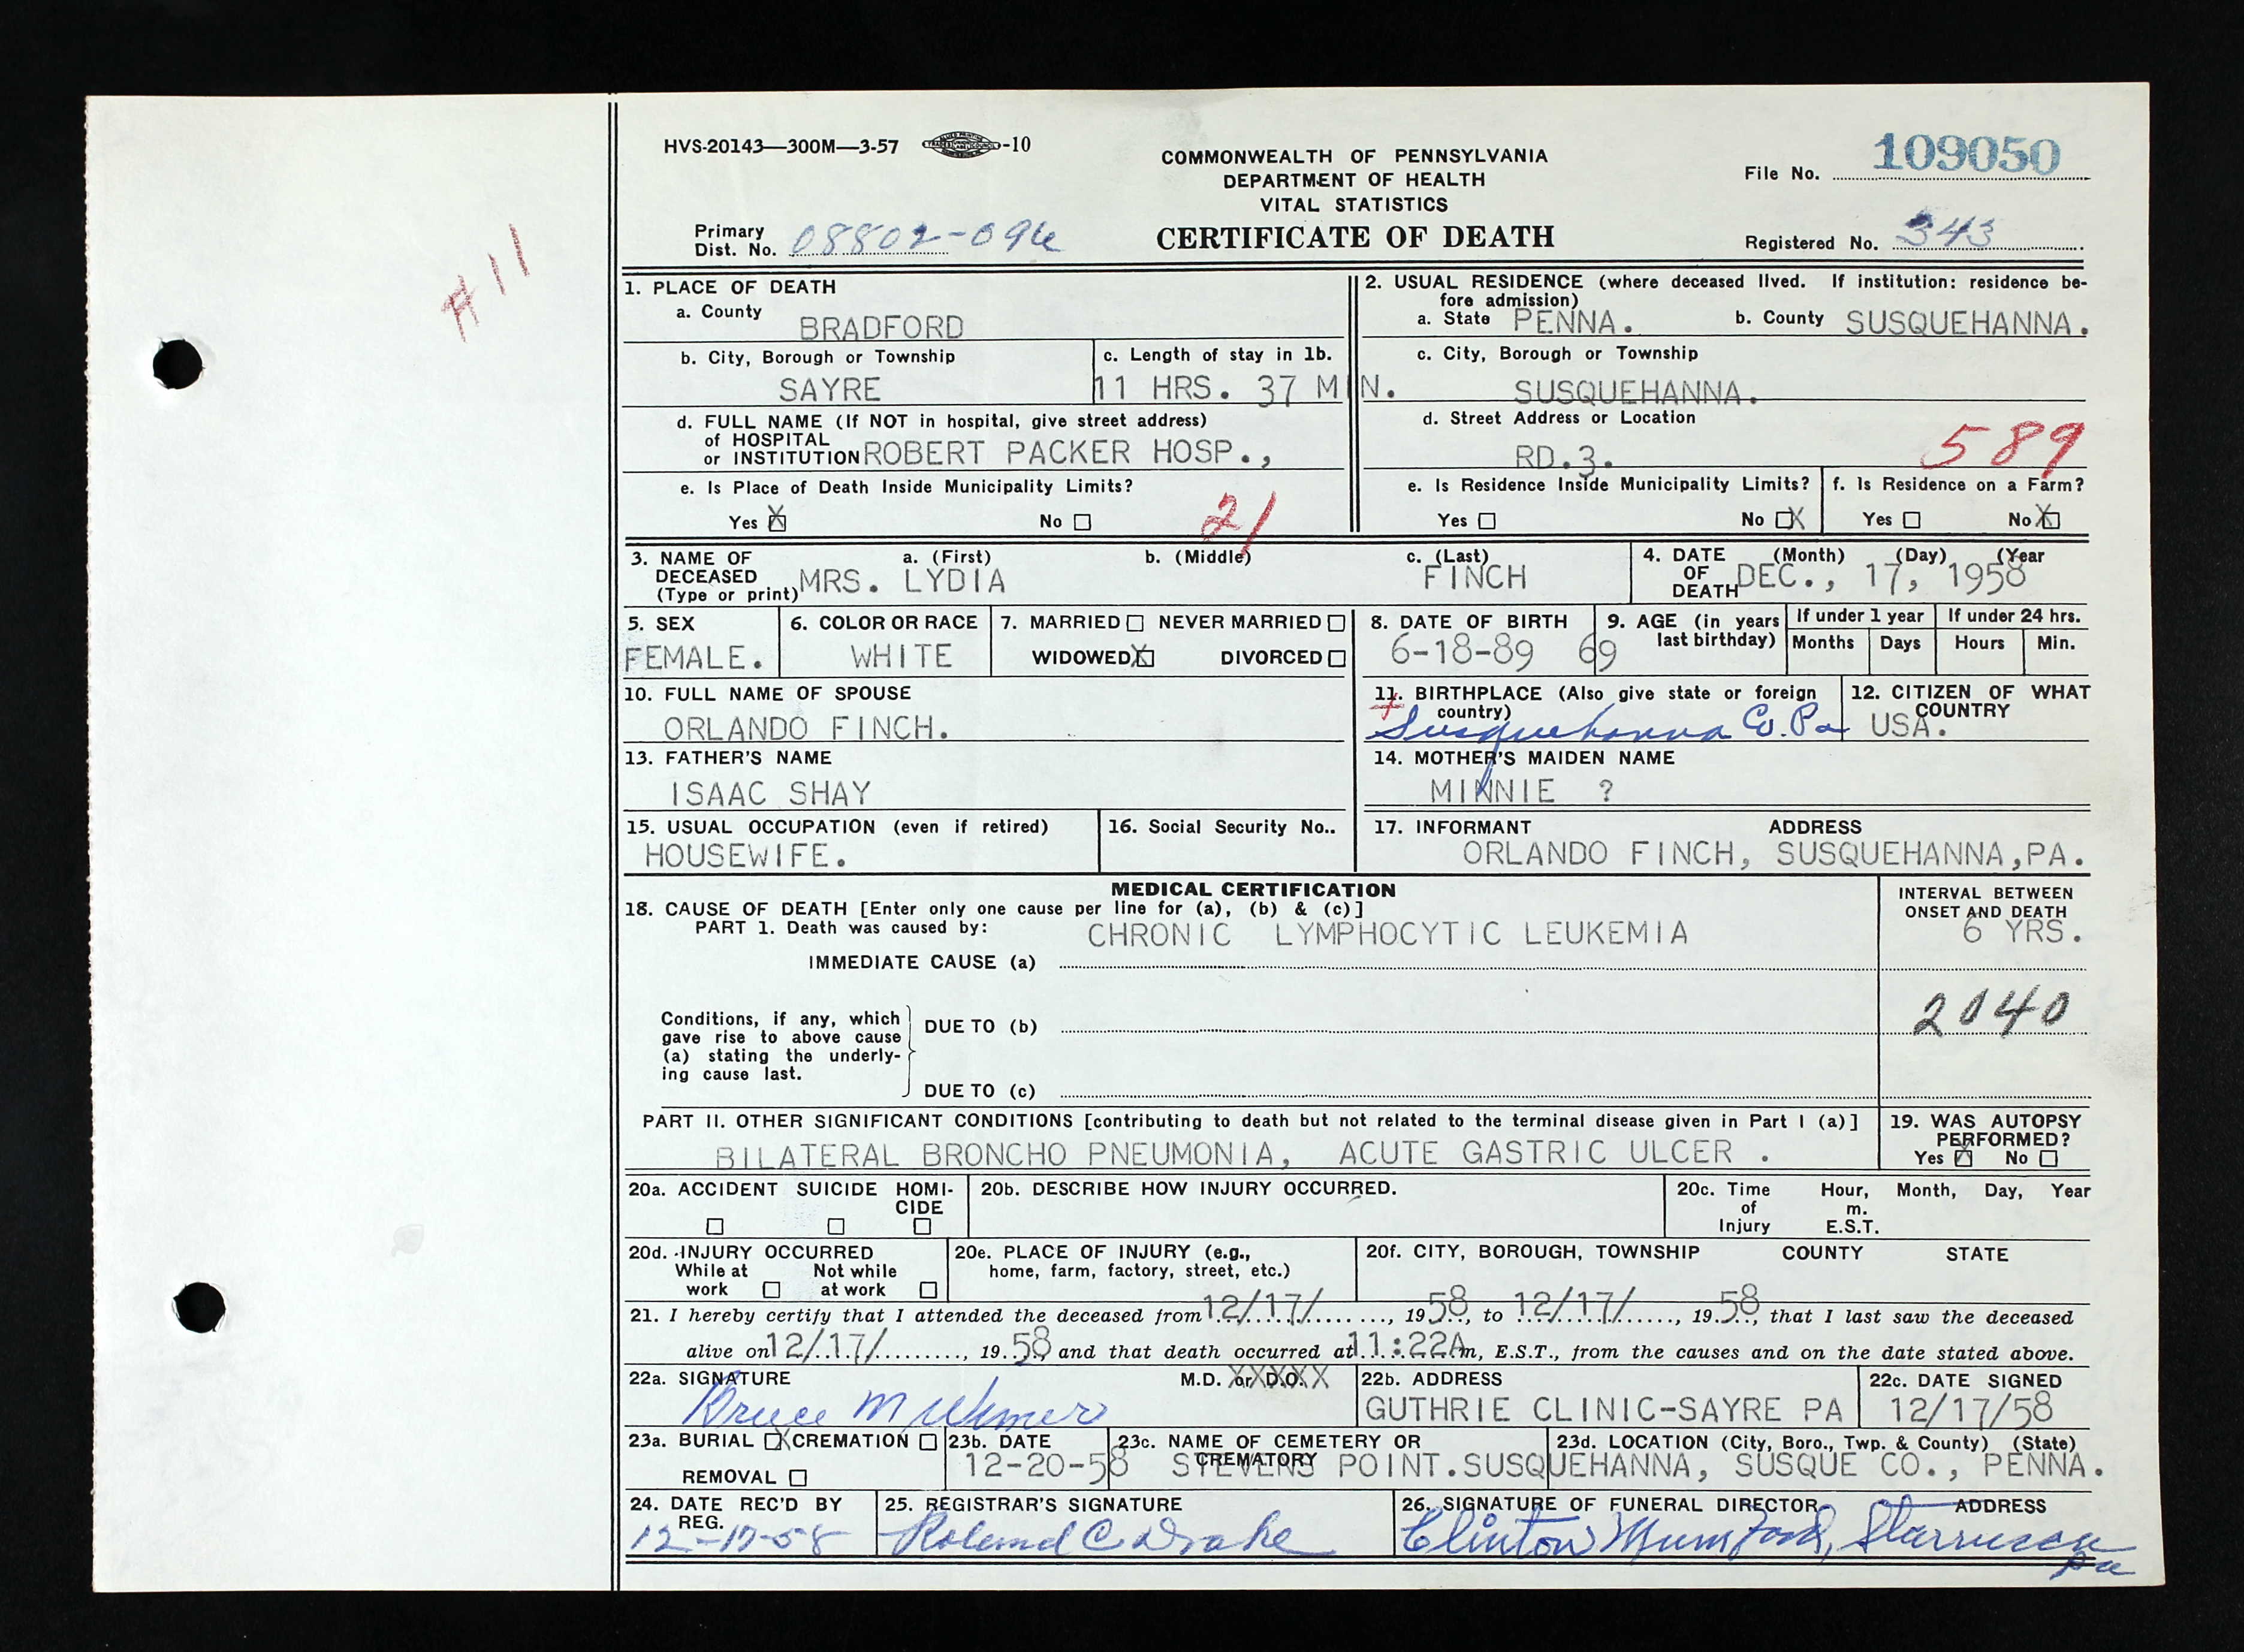 HVS-20143—300M—3-57 -10
COMMONWEALTH OF PENNSYLVANIA
DEPARTMENT OF HEALTH
VITAL STATISTICS
CERTIFICATE OF DEATH
File No. 109050
Primary
Dist. No. 08802-096
Registered No. 343
#11
1. PLACE OF DEATH
a. County
BRADFORD
b. City, Borough or Township
SAYRE
c. Length of stay in 1b.
11 HRS. 37 MIN.
d. FULL NAME (If NOT in hospital, give street address)
of HOSPITAL
or INSTITUTION ROBERT PACKER HOSP.,
e. Is Place of Death Inside Municipality Limits?
Yes X No
21
2. USUAL RESIDENCE (where deceased lived. If institution: residence be-
fore admission)
a. State PENNA. b. County SUSQUEHANNA.
c. City, Borough or Township
SUSQUEHANNA.
d. Street Address or Location
RD.3. 589
e. Is Residence Inside Municipality Limits?
Yes No X
f. Is Residence on a Farm?
Yes No X
3. NAME OF DECEASED (Type or print)
a. (First) b. (Middle) c. (Last)
MRS. LYDIA FINCH
4. DATE OF DEATH (Month) (Day) (Year
DEC., 17, 1958
5. SEX
FEMALE.
6. COLOR OR RACE
WHITE
7. MARRIED NEVER MARRIED
WIDOWED X DIVORCED
8. DATE OF BIRTH
6-18-89
9. AGE (in years
last birthday)
69
If under 1 year
Months Days
If under 24 hrs.
Hours Min.
10. FULL NAME OF SPOUSE
ORLANDO FINCH.
11. BIRTHPLACE (Also give state or foreign
country)
Susquehanna Co. Pa
12. CITIZEN OF WHAT
COUNTRY
USA.
13. FATHER'S NAME
ISAAC SHAY
14. MOTHER'S MAIDEN NAME
MINNIE ?
15. USUAL OCCUPATION (even if retired)
HOUSEWIFE.
16. Social Security No..
17. INFORMANT ADDRESS
ORLANDO FINCH, SUSQUEHANNA,PA.
MEDICAL CERTIFICATION
18. CAUSE OF DEATH [Enter only one cause per line for (a), (b) & (c)]
PART 1. Death was caused by:
CHRONIC LYMPHOCYTIC LEUKEMIA
IMMEDIATE CAUSE (a)
INTERVAL BETWEEN
ONSET AND DEATH
6 YRS.
2040
Conditions, if any, which
gave rise to above cause
(a) stating the underly-
ing cause last.
DUE TO (b)
DUE TO (c)
PART II. OTHER SIGNIFICANT CONDITIONS [contributing to death but not related to the terminal disease given in Part I (a)]
BILATERAL BRONCHO PNEUMONIA, ACUTE GASTRIC ULCER .
19. WAS AUTOPSY
PERFORMED?
Yes X No
20a. ACCIDENT SUICIDE HOMI-
CIDE
20b. DESCRIBE HOW INJURY OCCURRED.
20c. Time of Injury Hour, Month, Day, Year
m.
E.S.T.
20d. INJURY OCCURRED
While at work Not while at work
20e. PLACE OF INJURY (e.g.,
home, farm, factory, street, etc.)
20f. CITY, BOROUGH, TOWNSHIP COUNTY STATE
21. I hereby certify that I attended the deceased from 12/17/, 1958, to 12/17/, 1958, that I last saw the deceased
alive on 12/17/, 1958 and that death occurred at 11:22Am, E.S.T., from the causes and on the date stated above.
22a. SIGNATURE M.D. or D.O.
Bruce M
22b. ADDRESS
GUTHRIE CLINIC-SAYRE PA
22c. DATE SIGNED
12/17/58
23a. BURIAL X CREMATION
REMOVAL
23b. DATE
12-20-58
23c. NAME OF CEMETERY OR
CREMATORY
STEVENS POINT.
23d. LOCATION (City, Boro., Twp. & County) (State)
SUSQUEHANNA, SUSQUE CO., PENNA.
24. DATE REC'D BY
REG.
12-17-58
25. REGISTRAR'S SIGNATURE
Roland C Drake
26. SIGNATURE OF FUNERAL DIRECTOR ADDRESS
Clinton Mumford, Starrucca
Pa